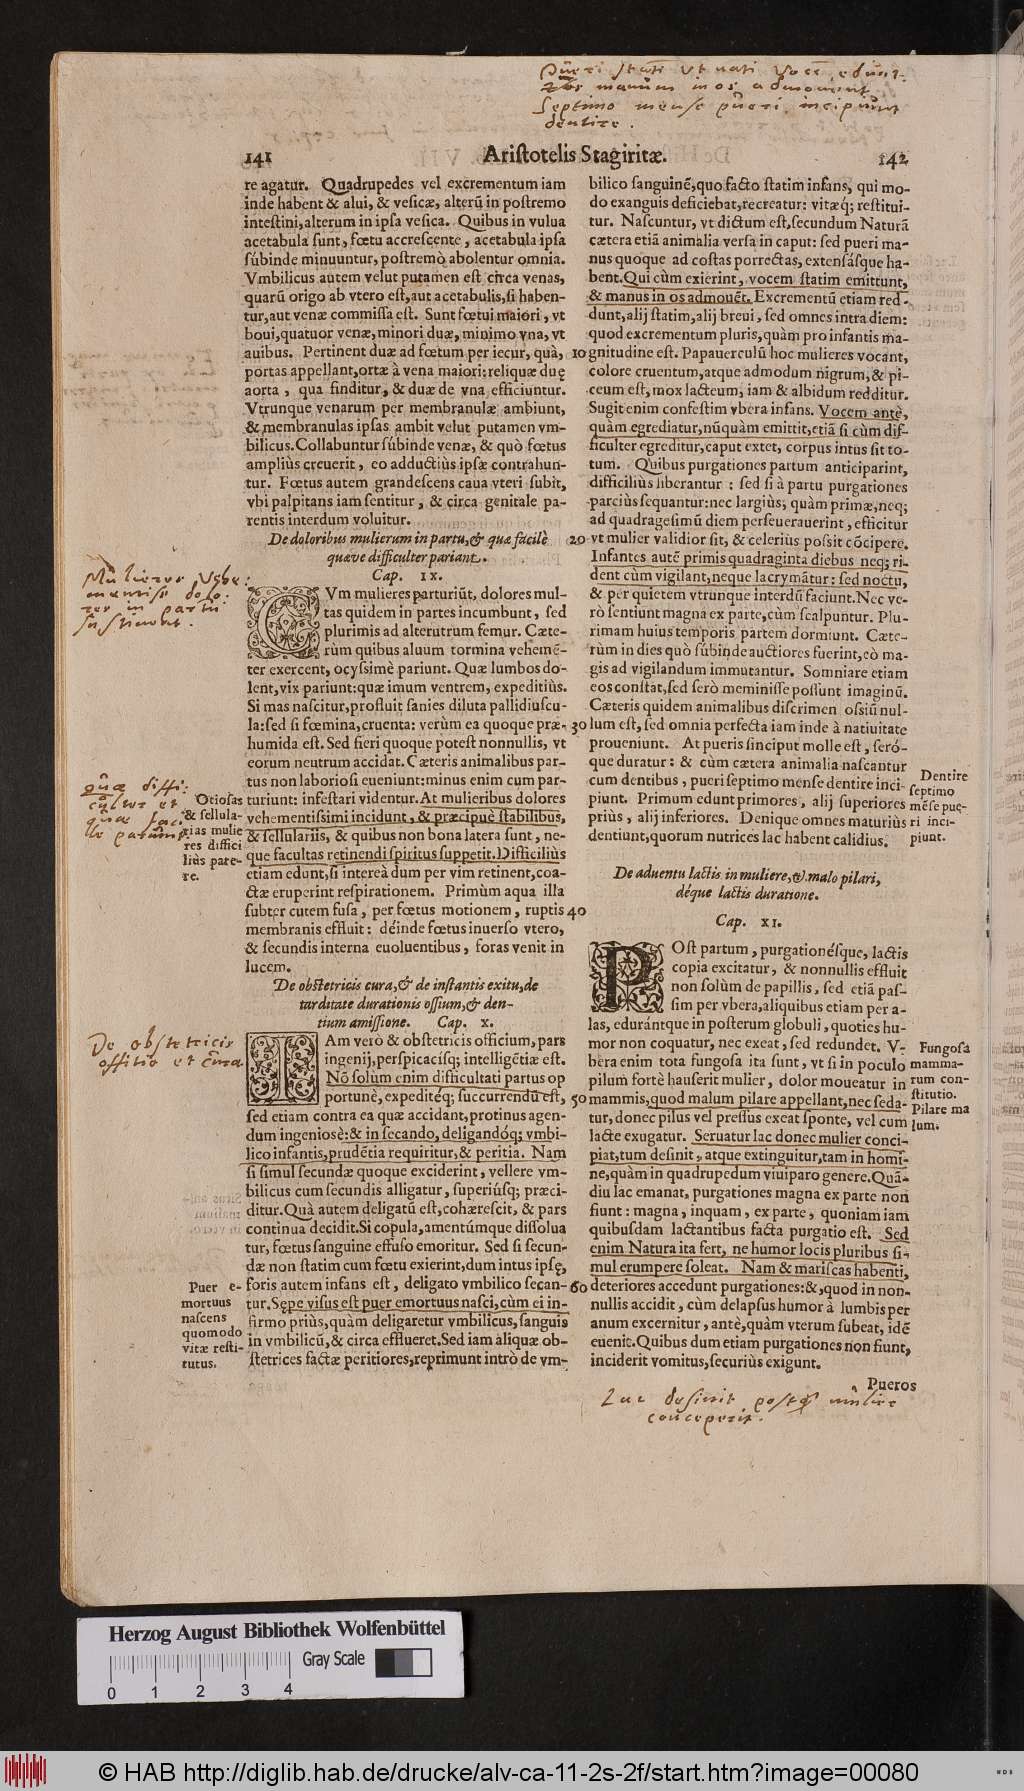 Pueri statim ut nati Vocē edunt
manum in os admovent
Septimo mense pueri incipiunt
dentire.
141
Aristotelis Stagiritæ.
142
re agatur. Quadrupedes vel excrementum iam
inde habent & alui, & vesicæ, alterū in postremo
intestini, alterum in ipsa vesica. Quibus in vulua
acetabula sunt, fœtu accrescente, acetabula ipsa
súbinde minuuntur, postremò abolentur omnia.
Vmbilicus autem velut putamen est circa venas,
quarū origo ab vtero est, aut acetabulis, si haben-
tur, aut venæ commissa est. Sunt fœtui maiori, vt
boui, quatuor venæ, minori duæ, minimo vna, vt
auibus. Pertinent duæ ad fœtum per iecur, quà,
portas appellant, ortæ à vena maiori: reliquæ duę
aorta, qua finditur, & duæ de vna efficiuntur.
Vtrunque venarum per membranulæ ambiunt,
& membranulas ipsas ambit velut putamen vm-
bilicus. Collabuntur súbinde venæ, & quò fœtus
ampliùs creuerit, eo adductiùs ipsæ contrahun-
tur. Fœtus autem grandescens caua vteri subit,
vbi palpitans iam sentitur, & circa genitale pa-
rentis interdum voluitur.
De doloribus mulierum in partu, & quæ facilè
quæve difficulter pariant.
Cap. IX.
CVm mulieres parturiūt, dolores mul-
tas quidem in partes incumbunt, sed
plurimis ad alterutrum femur. Cæte-
rùm quibus aluum tormina vehemē-
ter exercent, ocyssimè pariunt. Quæ lumbos do-
lent, vix pariunt: quæ imum ventrem, expeditiùs.
Si mas nascitur, profluit sanies diluta pallidiuscu-
la: sed si fœmina, cruenta: verùm ea quoque præ-
humida est. Sed fieri quoque potest nonnullis, vt
eorum neutrum accidat. Cæteris animalibus par-
tus non laboriosi eueniunt: minus enim cum par-
turiunt: infestari videntur. At mulieribus dolores
vehementissimi incidunt, & præcipuè stabilibus,
& sellulariis, & quibus non bona latera sunt, ne-
que facultas retinendi spiritus suppetit. Difficiliùs
etiam edunt, si intereà dum per vim retinent, coa-
ctæ eruperint respirationem. Primùm aqua illa
subter cutem fusa, per fœtus motionem, ruptis
membranis effluit: déinde fœtus inuerso vtero,
& secundis interna euoluentibus, foras venit in
lucem.
De obstetricis cura, & de instantis exitu, de
tarditate durationis ossium, & den-
tium amissione. Cap. X.
IAm verò & obstetricis officium, pars
ingenij, perspicacisq; intelligētiæ est.
Nō solùm enim difficultati partus op
portunè, expeditéq; succurrendū est,
sed etiam contra ea quæ accidant, protinus agen-
dum ingeniosè: & in secando, deligandóq; vmbi-
lico infantis, prudētia requiritur, & peritia. Nam
si simul secundæ quoque exciderint, vellere vm-
bilicus cum secundis alligatur, superiúsq; præci-
ditur. Quà autem deligatū est, cohærescit, & pars
continua decidit. Si copula, amentúmque dissolua
tur, fœtus sanguine effuso emoritur. Sed si secun-
dæ non statim cum fœtu exierint, dum intus ipsę,
foris autem infans est, deligato vmbilico secan-
tur. Sępe visus est puer emortuus nasci, cùm ei in-
firmo priùs, quàm deligaretur vmbilicus, sanguis
in vmbilicū, & circa efflueret. Sed iam aliquæ ob-
stetrices factæ peritiores, reprimunt intrò de vm-
Mulieres vehe:
mentiss dolo:
res in partu
sustinent.
quæ diffi:
culter et
quæ faci
le pariunt.
Otiosas
& sellula-
rias mulie
res diffici
liùs pare-
re.
De obstetricis
officio et cura
Puer e-
mortuus
nascens
quomodo
vitæ resti-
tutus.
10
20
30
40
50
60
bilico sanguinē, quo facto statim infans, qui mo-
do exanguis deficiebat, recreatur: vitæq; restitui-
tur. Nascuntur, vt dictum est, secundum Naturā
cætera etiā animalia versa in caput: sed pueri ma-
nus quoque ad costas porrectas, extensásque ha-
bent. Qui cùm exierint, vocem statim emittunt,
& manus in os admouēt. Excrementū etiam red-
dunt, alij statim, alij breui, sed omnes intra diem:
quod excrementum pluris, quàm pro infantis ma-
gnitudine est. Papauerculū hoc mulieres vocant,
colore cruentum, atque admodum nigrum, & pi-
ceum est, mox lacteum, iam & albidum redditur.
Sugit enim confestim vbera infans. Vocem antè,
quàm egrediatur, nūquàm emittit, etiā si cùm dif-
ficulter egreditur, caput extet, corpus intus sit to-
tum. Quibus purgationes partum anticiparint,
difficiliùs liberantur: sed si à partu purgationes
parciùs sequantur: nec largiùs, quàm primæ, neq;
ad quadragesimū diem perseuerauerint, efficitur
vt mulier validior sit, & celeriùs possit cōcipere.
Infantes autē primis quadraginta diebus neq; ri-
dent cùm vigilant, neque lacrymātur: sed noctu,
& per quietem vtrunque interdū faciunt. Nec ve-
rò sentiunt magna ex parte, cùm scalpuntur. Plu-
rimam huius temporis partem dormiunt. Cæte-
rùm in dies quò súbinde auctiores fuerint, eò ma-
gis ad vigilandum immutantur. Somniare etiam
eos constat, sed serò meminisse possunt imaginū.
Cæteris quidem animalibus discrimen ossiū nul-
lum est, sed omnia perfecta iam inde à natiuitate
proueniunt. At pueris sinciput molle est, seró-
que duratur: & cùm cætera animalia nascantur
cum dentibus, pueri septimo mense dentire inci-
piunt. Primum edunt primores, alij superiores
priùs, alij inferiores. Denique omnes maturiùs
dentiunt, quorum nutrices lac habent calidius.
De aduentu lactis in muliere, & malo pilari,
déque lactis duratione.
Cap. XI.
POst partum, purgationésque, lactis
copia excitatur, & nonnullis effluit
non solùm de papillis, sed etiā pas-
sim per vbera, aliquibus etiam per a-
las, edurántque in posterum globuli, quoties hu-
mor non coquatur, nec exeat, sed redundet. V-
bera enim tota fungosa ita sunt, vt si in poculo
pilum fortè hauserit mulier, dolor moueatur in
mammis, quod malum pilare appellant, nec seda-
tur, donec pilus vel pressus exeat sponte, vel cum
lacte exugatur. Seruatur lac donec mulier conci-
piat, tum desinit, atque extinguitur, tam in homi-
ne, quàm in quadrupedum viuiparo genere. Quā-
diu lac emanat, purgationes magna ex parte non
fiunt: magna, inquam, ex parte, quoniam iam
quibusdam lactantibus facta purgatio est. Sed
enim Natura ita fert, ne humor locis pluribus si-
mul erumpere soleat. Nam & mariscas habenti,
deteriores accedunt purgationes: &, quod in non-
nullis accidit, cùm delapsus humor à lumbis per
anum excernitur, antè, quàm vterum subeat, idē
euenit. Quibus dum etiam purgationes non fiunt,
inciderit vomitus, securiùs exigunt.
Pueros
Dentire
septimo
mēse pue-
ri inci-
piunt.
Fungosa
mamma-
rum con-
stitutio.
Pilare ma
lum.
Lac desinit postq̃ mulier
conceperit.
Herzog August Bibliothek Wolfenbüttel
Gray Scale
0 1 2 3 4
© HAB http://diglib.hab.de/drucke/alv-ca-11-2s-2f/start.htm?image=00080